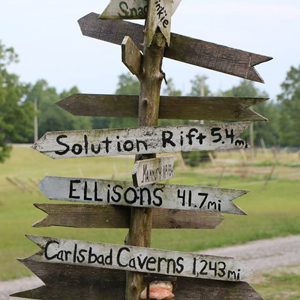 Solution Rift 5.4 mi
ELLISONS 41.7 mi
Carlsbad Caverns 1,243 mi